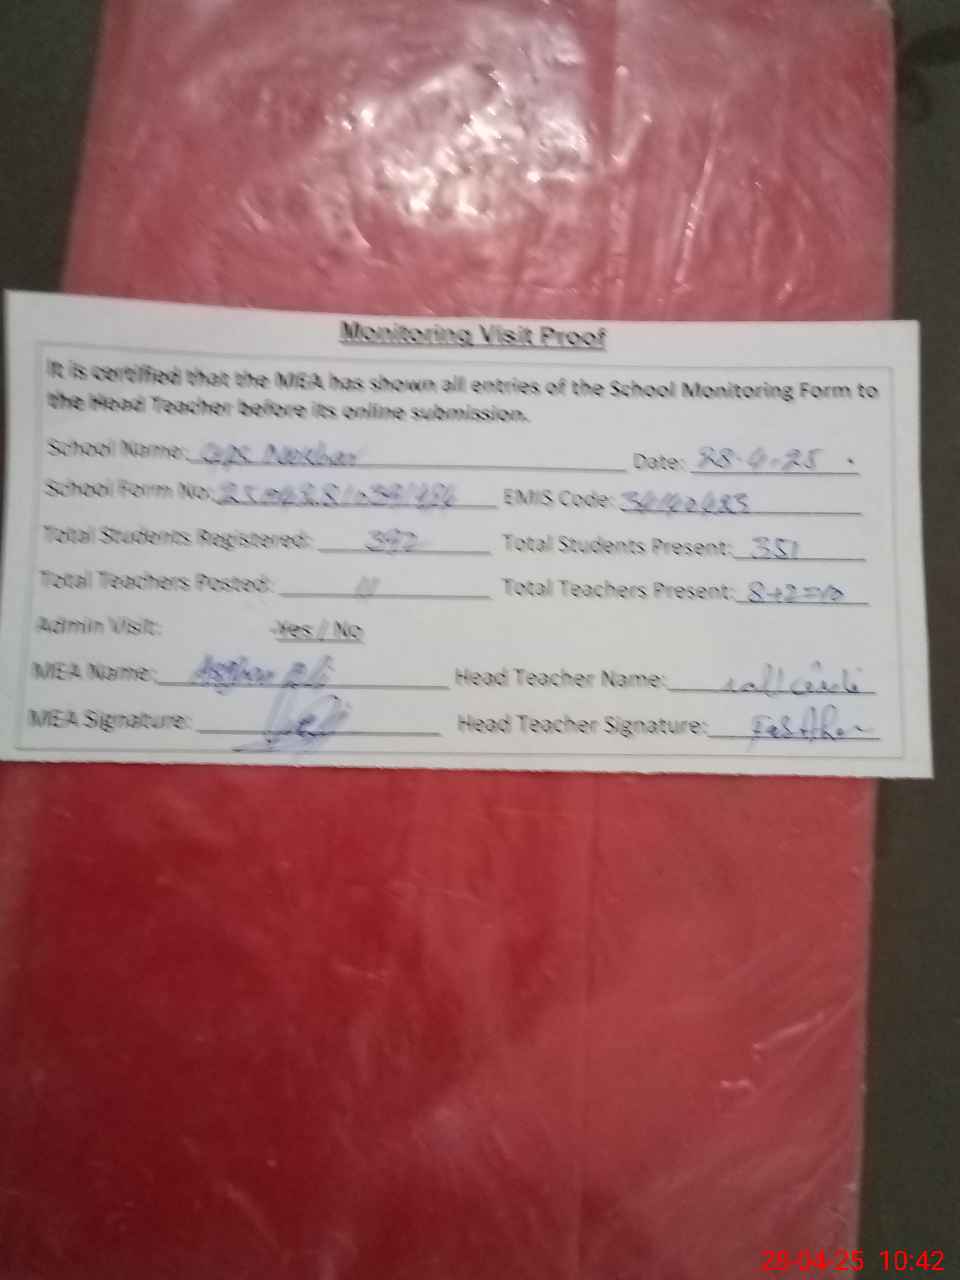 Monitoring Visit Proof
It is certified that the MEA has shown all entries of the School Monitoring Form to
the Head Teacher before its online submission.
School Name: GPS Date: 28-4-25
School Form No: EMIS Code:
Total Students Registered: 392 Total Students Present: 351
Total Teachers Posted: 11 Total Teachers Present: 8+2=10
Admin Visit: Yes / No
MEA Name: Asghar Ali Head Teacher Name:
MEA Signature: Head Teacher Signature:
28-04-25 10:42